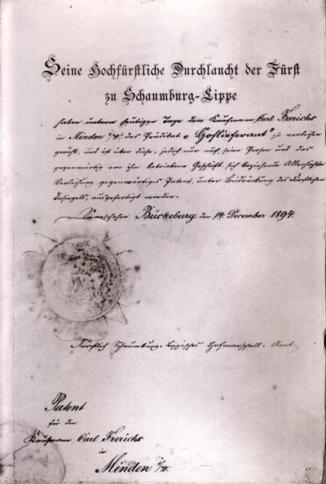 Seine Hochfürstliche Durchlaucht der Fürst
zu Schaumburg-Lippe
haben unterm heutigen Tage dem Kaufmann Carl Frerichs
in Minden i/W. das Prädikat „Hoflieferant" zu verleihen
geruht, und ist über diese, jedoch nur auf seine Person und das
gegenwärtig von ihm betriebene Geschäft sich beziehende Allerhöchste
Verleihung gegenwärtiges Patent, unter Beidrückung des Fürstlichen
Insiegels, ausgefertigt worden.
Bückeburg den 14. December 1894.
Fürstlich Schaumburg-Lippisches Hofmarschall-Amt
Patent
für den
Kaufmann Carl Frerichs
in
Minden i/W.